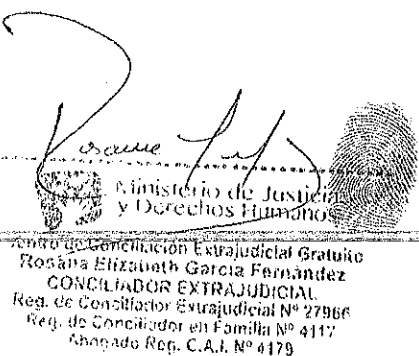 Rosana
Ministerio de Justicia
y Derechos Humanos
Centro de Conciliación Extrajudicial Gratuito
Rosana Elizabeth García Fernández
CONCILIADOR EXTRAJUDICIAL
Reg. de Conciliador Extrajudicial Nº 27966
Reg. de Conciliador en Familia Nº 4117
Abogado Reg. C.A.I. Nº 4179